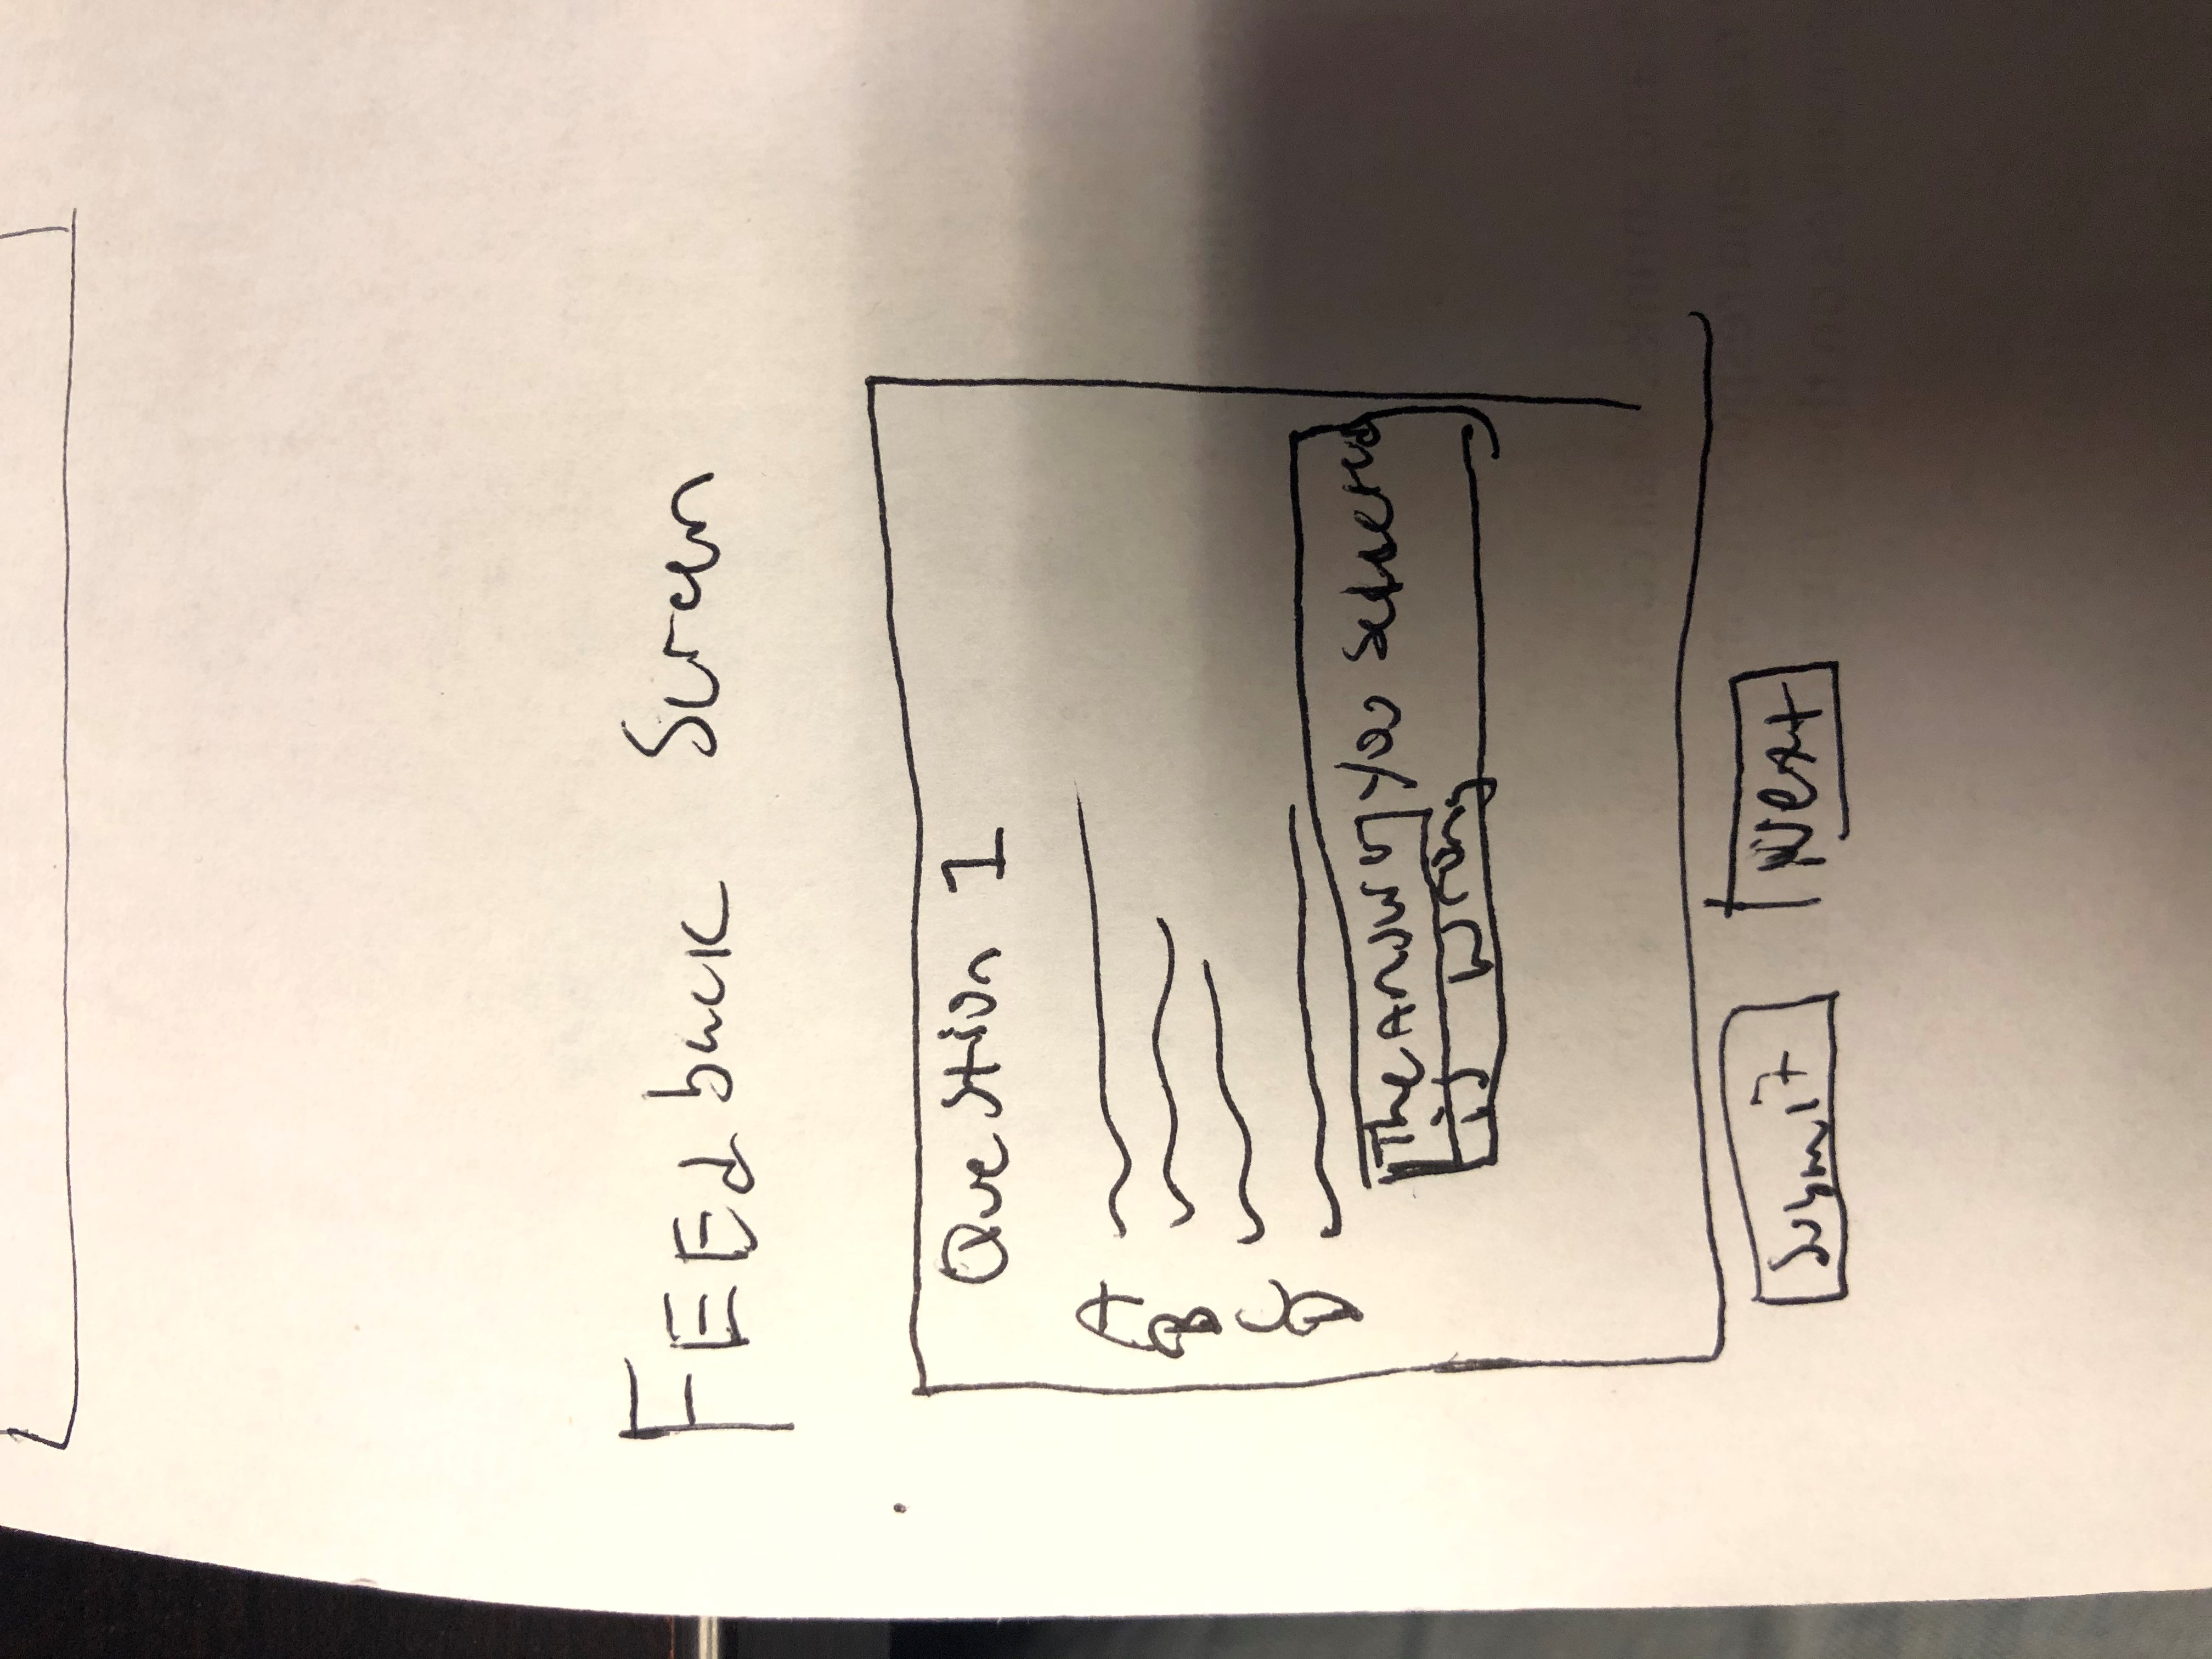 FEEdback Screen
Question 1
A
B
C
D
The Answer you selected
is wrong
Submit Next